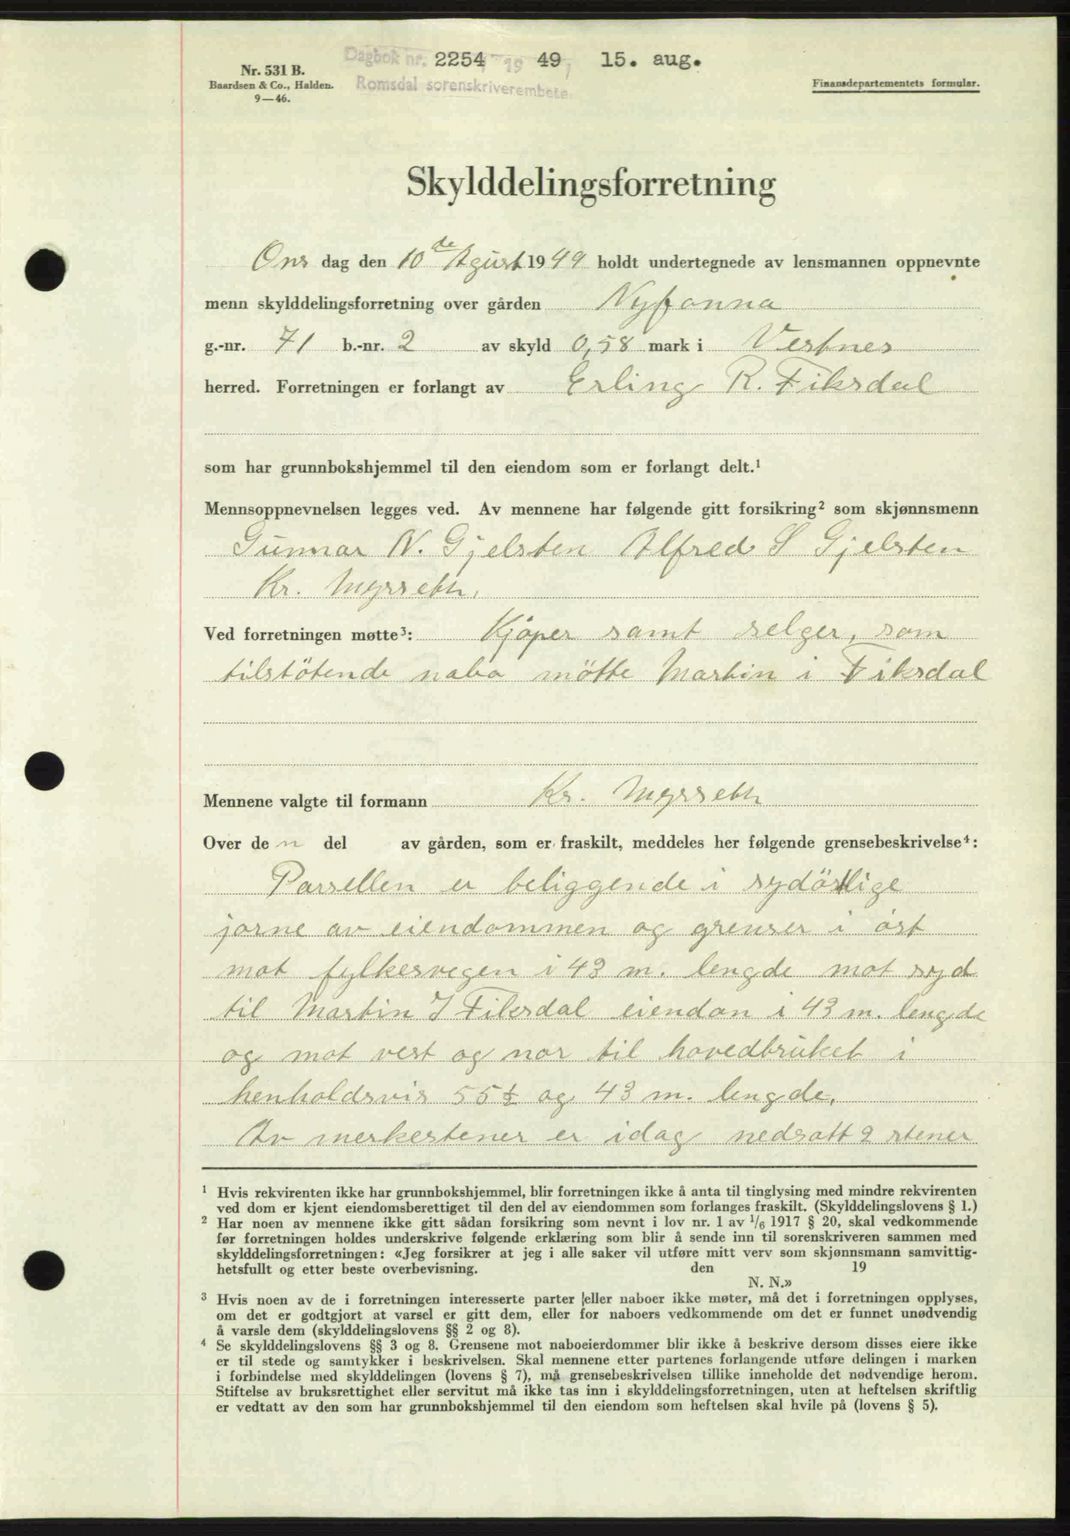 Dagbok nr. 2254 19 49 15. aug.
Romsdal sorenskriverembete
Nr. 531 B.
Baardsen & Co., Halden.
9—46.
Finansdepartementets formular.
Skylddelingsforretning
Ons dag den 10de Agust 1949 holdt undertegnede av lensmannen oppnevnte
menn skylddelingsforretning over gården Nyfonna
g.-nr. 71 b.-nr. 2 av skyld 0,58 mark i Vestnes
herred. Forretningen er forlangt av Erling R. Fiksdal
som har grunnbokshjemmel til den eiendom som er forlangt delt.¹
Mennsoppnevnelsen legges ved. Av mennene har følgende gitt forsikring² som skjønnsmenn
Gunnar N. Gjelsten Alfred S Gjelsten
Kr. Myrseth.
Ved forretningen møtte³: Kjöper samt selger, som
tilstötende nabo mötte Martin i Fiksdal
Mennene valgte til formann Kr. Myrseth
Over de n del av gården, som er fraskilt, meddeles her følgende grensebeskrivelse⁴:
Parsellen er beliggende i sydöstlige
jorne av eiendommen og grenser i öst
mot fylkesvegen i 43 m. lengde mot syd
til Martin I Fiksdal eiendon i 43 m. lengde
og mot vest og nor til hovedbruket i
henholdsvis 55½ og 43 m. lengde.
Av merkestener er idag nedsatt 2 stener
¹ Hvis rekvirenten ikke har grunnbokshjemmel, blir forretningen ikke å anta til tinglysing med mindre rekvirenten
ved dom er kjent eiendomsberettiget til den del av eiendommen som forlanges fraskilt. (Skylddelingslovens § 1.)
² Har noen av mennene ikke gitt sådan forsikring som nevnt i lov nr. 1 av 1/6 1917 § 20, skal vedkommende
før forretningen holdes underskrive følgende erklæring som blir å sende inn til sorenskriveren sammen med
skylddelingsforretningen: «Jeg forsikrer at jeg i alle saker vil utføre mitt verv som skjønnsmann samvittig-
hetsfullt og etter beste overbevisning. den 19
N. N.»
³ Hvis noen av de i forretningen interesserte parter eller naboer ikke møter, må det i forretningen opplyses,
om det er godtgjort at varsel er gitt dem, eller for naboers vedkommende om det er funnet unødvendig
å varsle dem (skylddelingslovens §§ 2 og 8).
⁴ Se skylddelingslovens §§ 3 og 8. Grensene mot naboeierdommer blir ikke å beskrive dersom disses eiere ikke
er til stede og samtykker i beskrivelsen. Skal mennene etter partenes forlangende utføre delingen i marken
i forbindelse med skylddelingen (lovens § 7), må grensebeskrivelsen tillike inneholde det nødvendige herom.
Stiftelse av bruksrettighet eller servitut må ikke tas inn i skylddelingsforretningen, uten at heftelsen skriftlig
er vedtatt av den som har grunnbokshjemmel til den eiendom som heftelsen skal hvile på (lovens § 5).